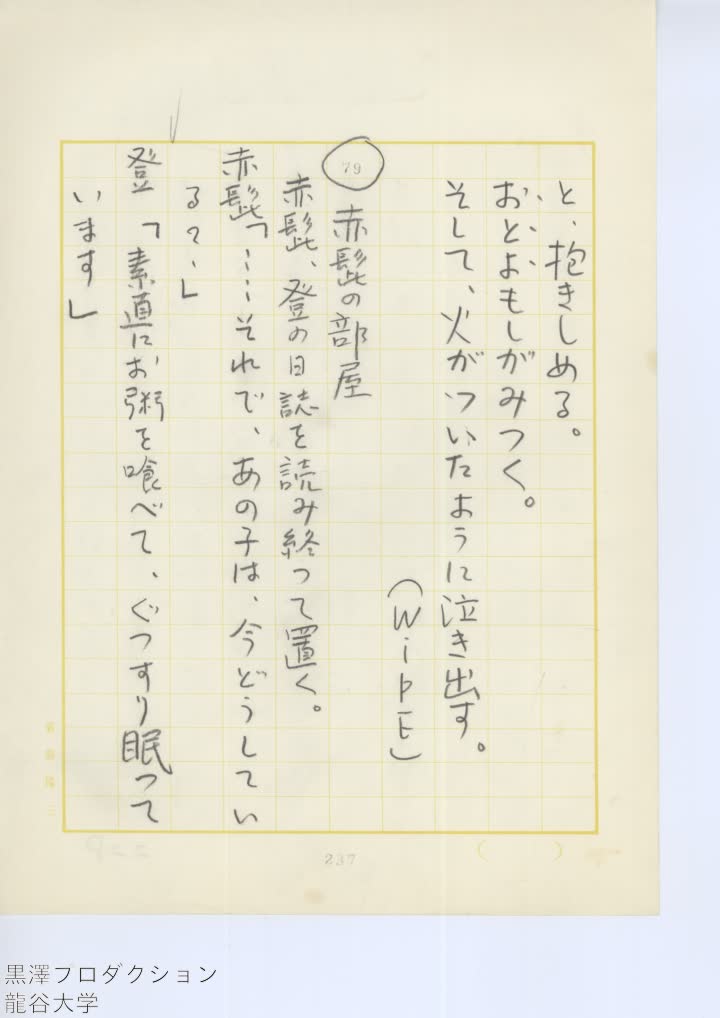 と、抱きしめる。
おとよもしがみつく。
そして、火がついたように泣き出す。
(WiPE)
79
赤髭の部屋
赤髭、登の日誌を読み終って置く。
赤髭「……それで、あの子は、今どうしてい
る？」
登「素直にお粥を喰べて、ぐっすり眠って
います」
237
黒澤プロダクション
龍谷大学